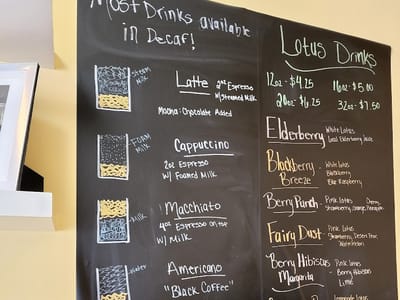 Most Drinks available
in Decaf!
Steam
Milk
Latte
2oz Espresso
w/Steamed Milk
Mocha: Chocolate Added
Foam
Milk
Cappuccino
2oz Espresso
w/ Foamed Milk
Milk
Macchiato
4oz Espresso on top
w/ Milk
Water
Americano
"Black Coffee"
Lotus Drinks
12oz - $4.25
16oz - $5.00
20oz - $6.25
32oz - $7.50
Elderberry
White Lotus
Local Elderberry Juice
Blackberry
Breeze
White Lotus
Blackberry
Blue Raspberry
Berry Punch
Pink Lotus
Cherry
Strawberry, Orange, Pineapple
Fairy Dust
Pink Lotus
Strawberry, Desert Pear
Watermelon
Berry Hibiscus
Margarita
Pink Lotus
Berry Hibiscus
Lime